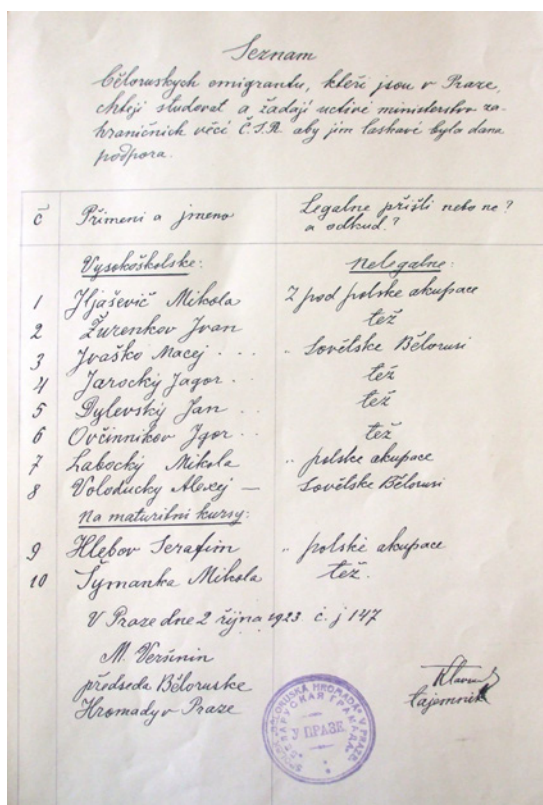 Seznam
běloruskych emigrantu, kteři jsou v Praze,
chtěji studovat a žadaji uctivě ministerstvo za-
hraničnich věci Č.S.R. aby jim laskavě byla dana
podpora.
č Přimeni a jmeno Legalne přišli nebo ne?
a odkud?
Vysokoškolske: Nelegalne:
1 Iljaševič Mikola Z pod polske akupace
2 Žurenkov Ivan též
3 Ivaško Macej . . . " Sovětske Bělorusi
4 Jarocký Jagor . . též
5 Dylevský Jan . . též
6 Ovčinnikov Igor . . též
7 Labocký Mikola " polske akupace
8 Voloducky Alexej — Sovětske Bělorusi
Na maturitni kursy:
9 Hlěbov Serafim " polské akupace
10 Šymanka Mikola též.
V Praze dne 2 řijna 1923 č. j 147
M. Veršinin
předseda Běloruske tajemnik
Hromady v Praze
SPOLEK „BĚLORUSKÁ HROMADA" V PRAZE
БЕЛАРУСКАЯ ГРАМАДА
У ПРАЗЕ